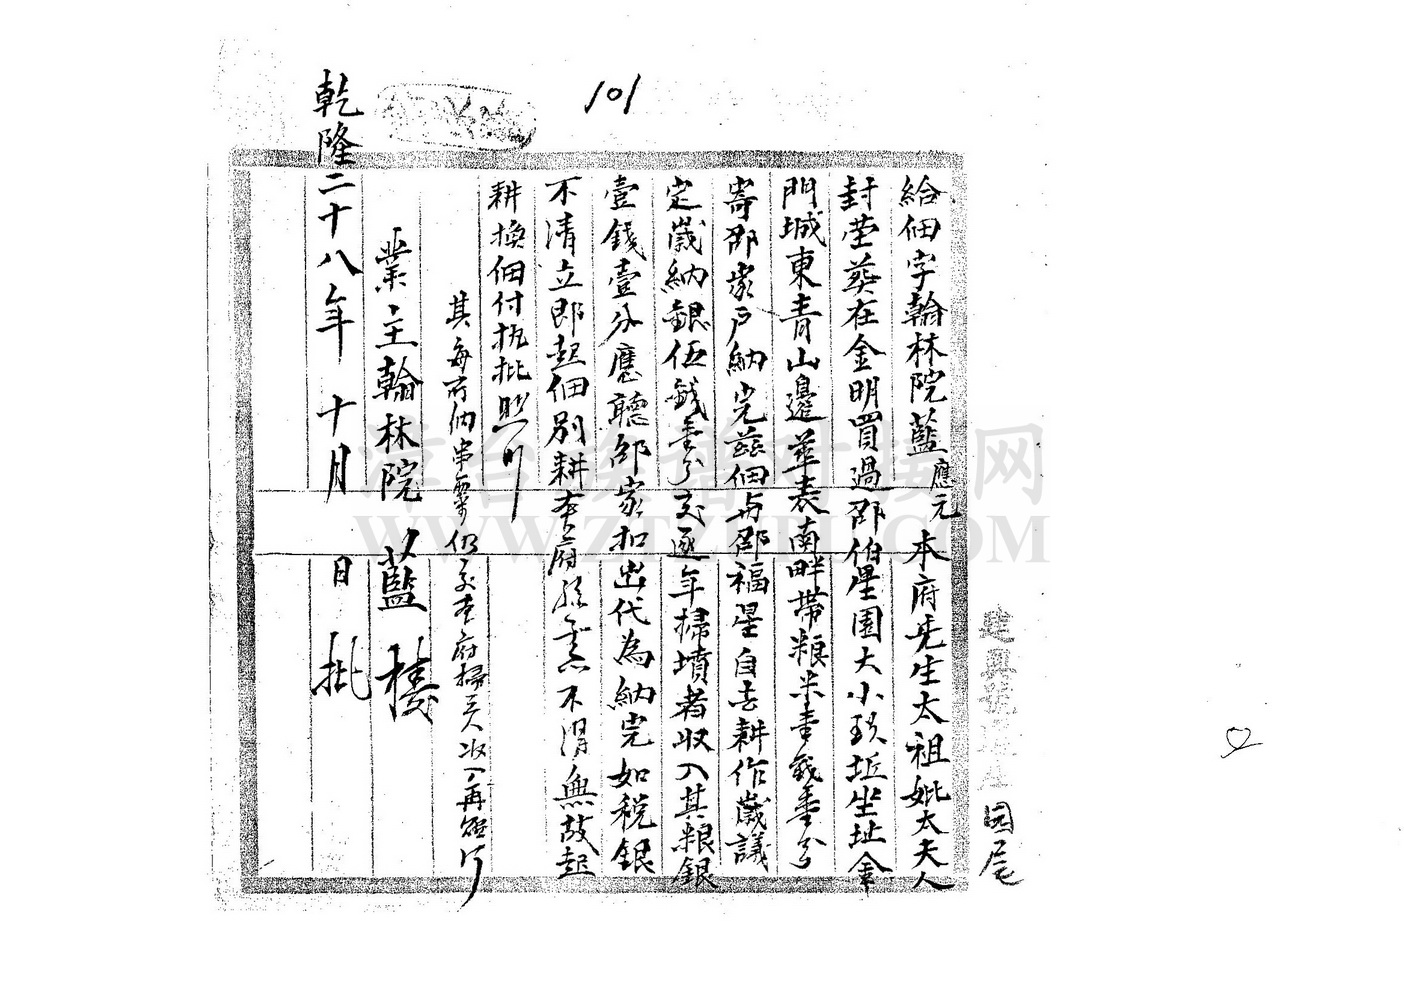 101
給佃字翰林院藍應元本府先生太祖妣太夫人
封塋葬在金明買過邵伯星園大小玖坵坐址金
門城東青山邊華表南畔帶粮米壹錢壹分
寄邵家戶納完茲佃与邵福星自去耕作歲議
定歲納銀伍錢壹分交逐年掃墳者收入其粮銀
壹錢壹分應聽邵家扣出代為納完如稅銀
不清立即起佃別耕本府不得無故起
耕換佃付执批照
其每年納串票仍交本府掃人收
業主翰林院藍
乾隆二十八年十月 日批
建興號
园尾
漳台族谱对接网
WWW.ZTZUPU.COM